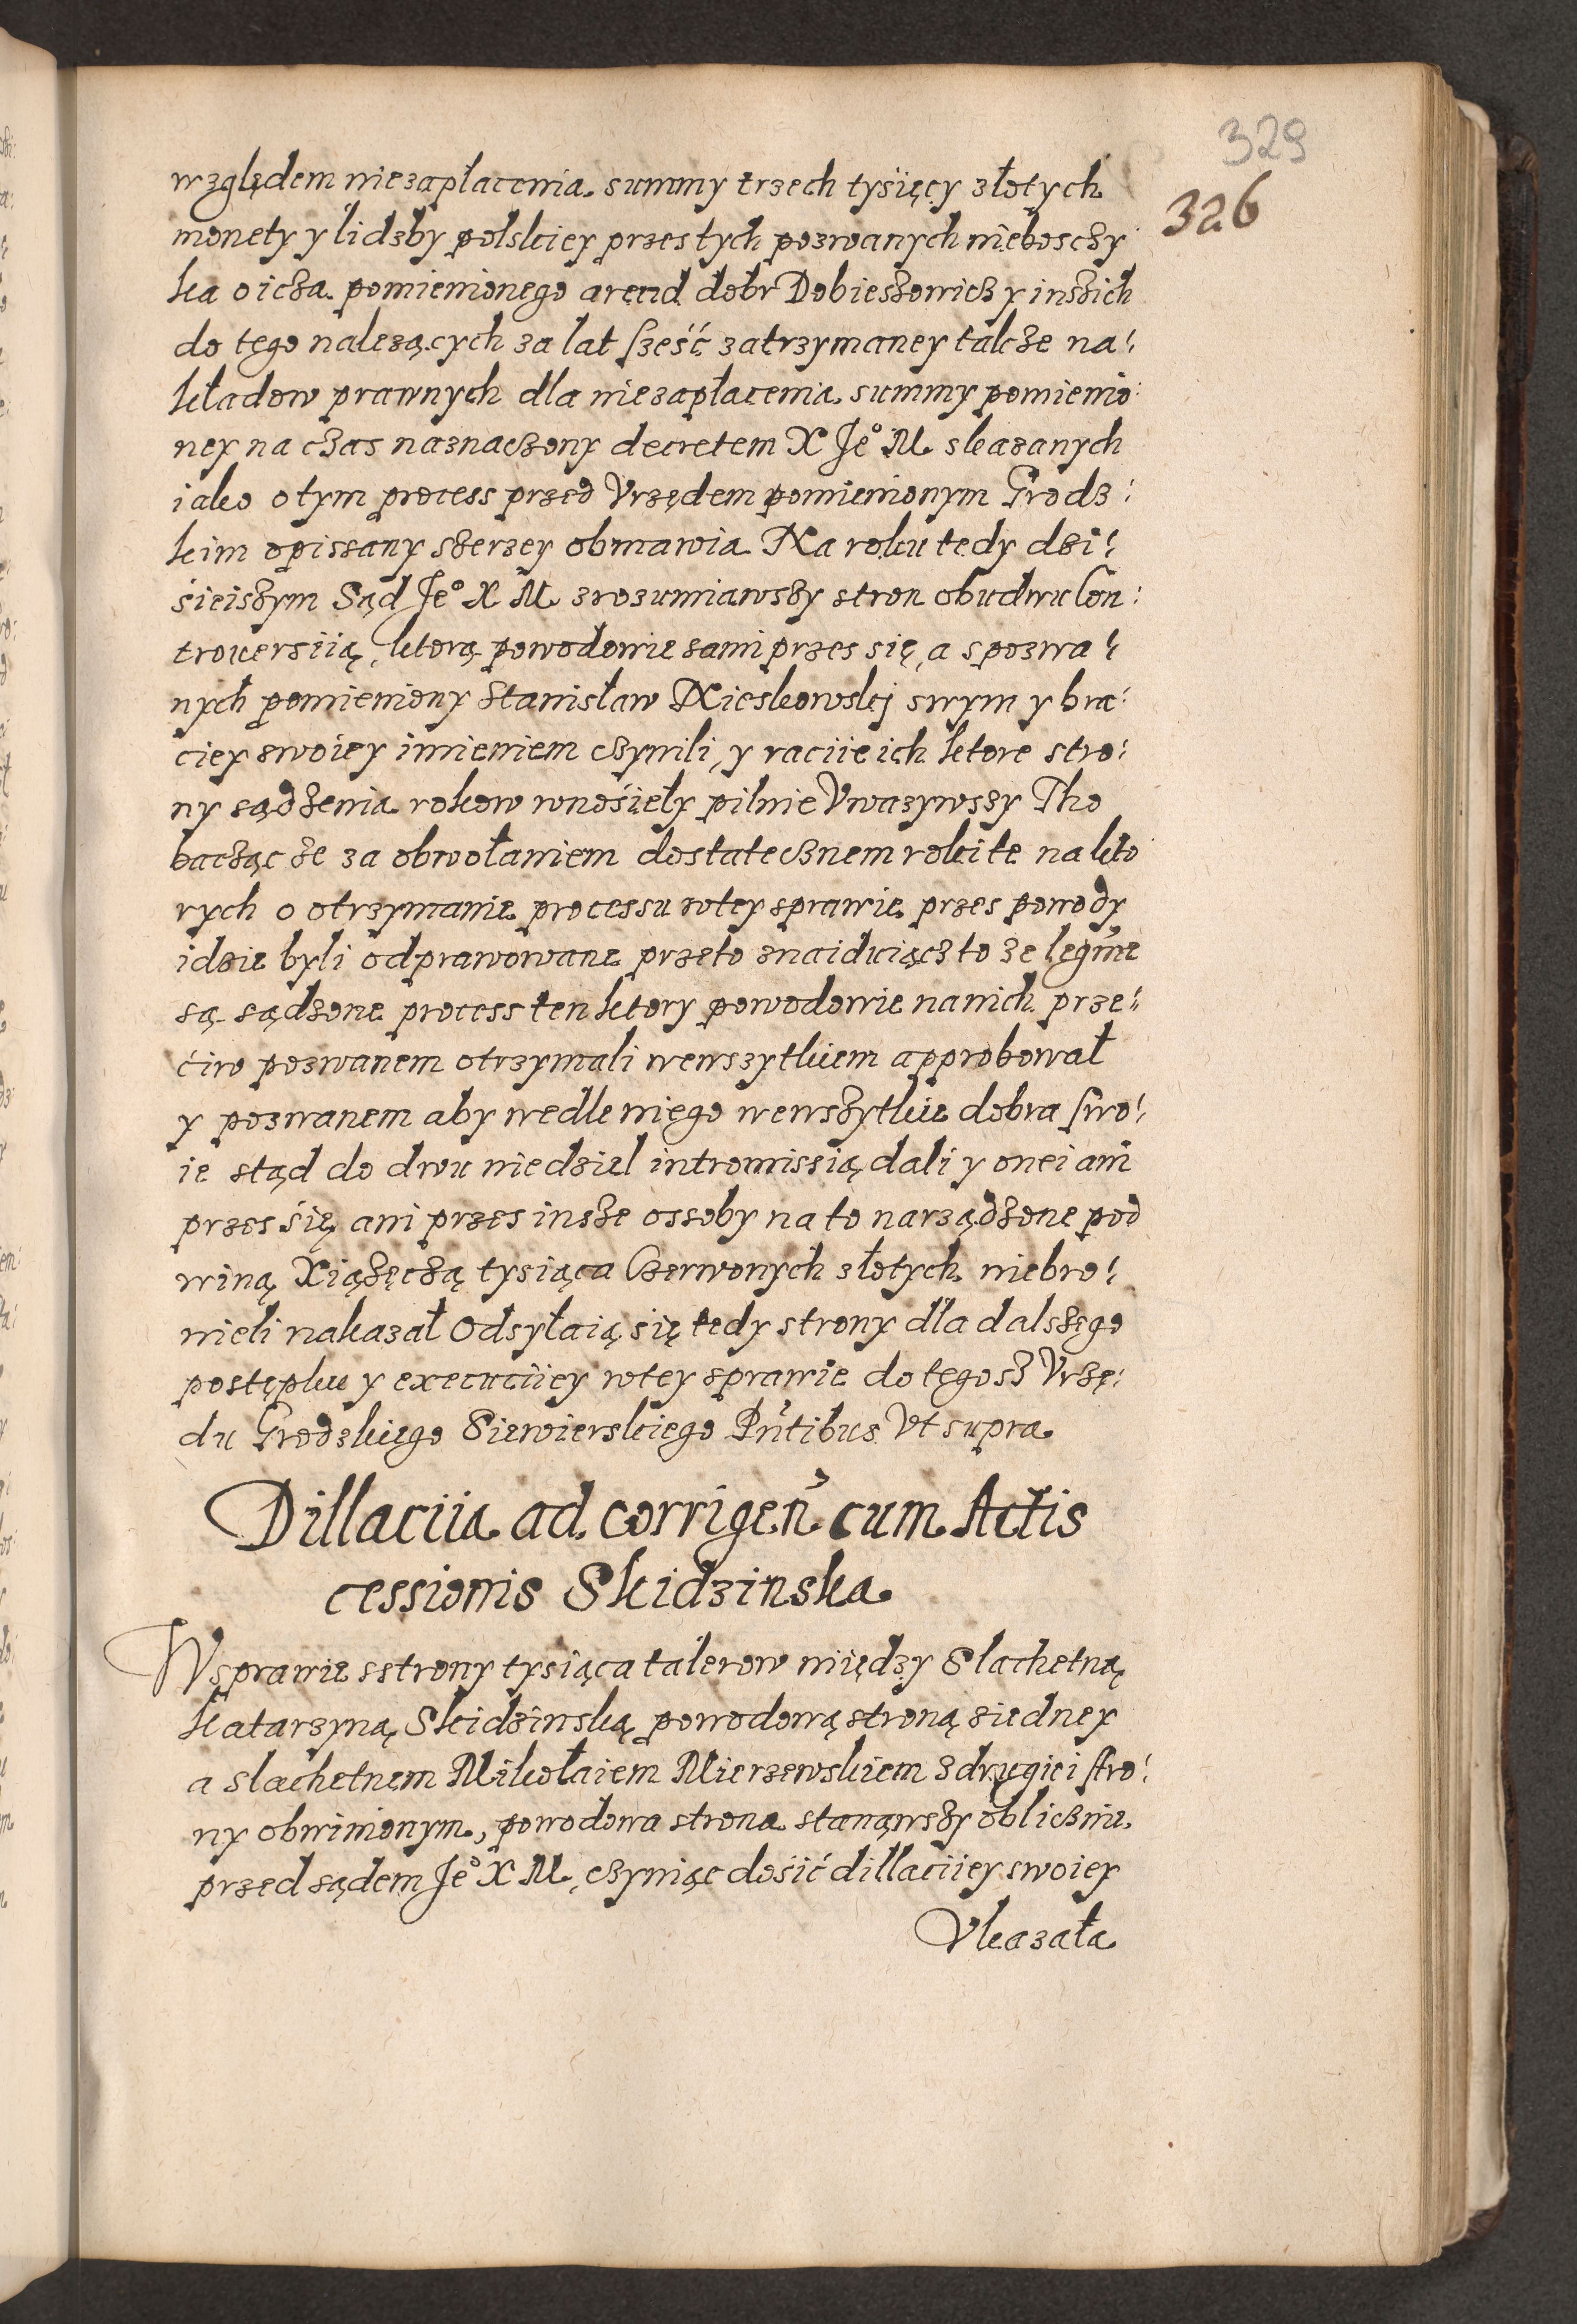 329
326
względem niezapłacenia summy trzech tysięcy złotych
monety y lidzby polskiey przes tych pozwanych nieboszczy
ka oicza pomienionego arend dobr Dobieszowicz y inszich
do tęgo nalezących za lat szesć zatrzymaney takze na:
kładow prawnych dla niezapłacenia summy pomienio:
ney na czas naznaczony decretem X Je° M skazanych
iako o tym process przed Vrzędem pomienionym Grodz:
kim opissany szerzey obmawia Na roku tedy dzi:
sieiszym Sąd Je° X M zrozumiawszy stron obudwu Con:
trouersiią, ktorą powodowie sami przes się, a s pozwa:
nych pomieniony Stanisław Mieskowskj swym y bra:
ciey swoiey imieniem czynili, y raciie ich ktore stro:
ny sądzenia rokow wnosieły pilnie Vwazywszy Tho
bacząc ze za obwołaniem dostatecznem roki te na kto
rych o otrzymanie processu wtey sprawie przes powody
idzie byli odprawowane przeto znaiduiącz to ze legime
są sądzone process ten ktory powodowie na nich prze:
ciw pozwanem otrzymali wewszytkiem approbował
y pozwanem aby wedle niego wewszytkie dobra swo:
ie stąd do dwu niedziel intromissią dali y onei ani
przes się ani przes insze ossoby na to narządzone pod
winą Xiązęczą tysiąca Czerwonych złotych niebro:
nieli nakazał Odsyłaią się tedy strony dla dalszego
postępku y executiiey wtey sprawie do tęgosz Vrzę:
du Grodzkiego Siewierskiego Pntibus Vt supra
Dillaciia ad corrigen cum Actis
cessionis Skidzinska
W sprawie sstrony tysiąca talerow między Slachetną
Katarzyną Skidzinską powodową stroną ziedney
a slachetnem Mikołaiem Mierzewskiem z drugiei stro:
ny obwinionym, powodowa strona stanąwszy oblicznie
przed sądem Je° X M, czyniąc dosić dillaciiey swoiey
Vkazała